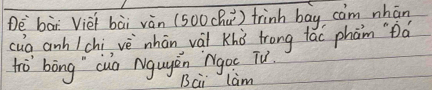 Đề bài: Viết bài văn (500 chữ) trình bày cảm nhận
của anh / chị về nhân vật Khờ trong tác phẩm "Đá
trổ bông" của Nguyễn Ngọc Tư.
Bài làm